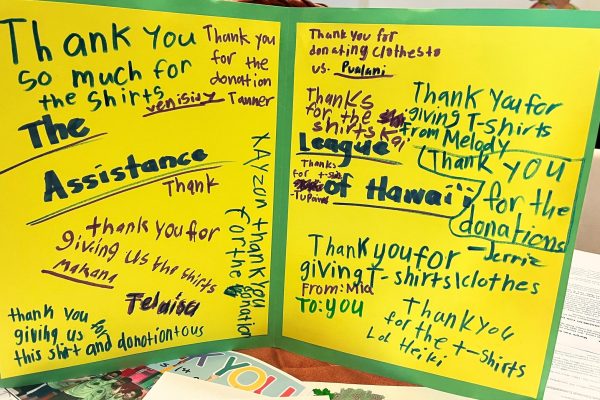 Thank You
so much for
the shirts
venisidy
Thank you
for the
donation
Tanner
The
Assistance
Thank
thank you for
giving us the shirts
Makana
thank you for
giving us
this shirt and donotiontous
xAyzon thank you
for the donation
Thank you for
donating clothes to
us. Pualani
Thanks
for the
shirts Kai
Thank You for
giving T-shirts
From Melody
League
of Hawai'i
Thanks
for t-shirts
Thank you
for the
donations
-Jerriz
Thank you for
giving T-shirts/clothes
From: Mia
To: you
Thank you
for the t-shirts
Lol Heiki
YOU